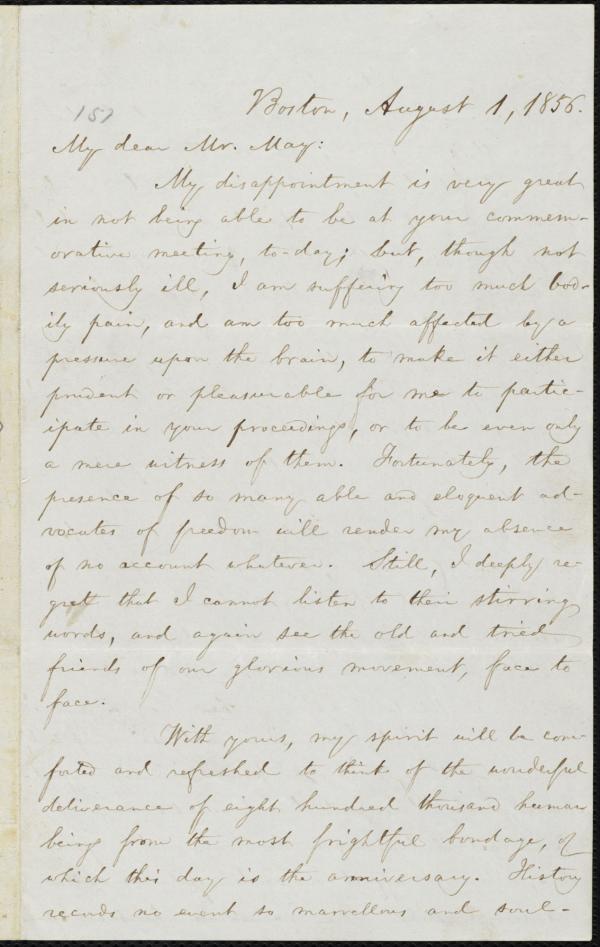 157
Boston, August 1, 1856.
My dear Mr. May:
My disappointment is very great
in not being able to be at your commem-
orative meeting, to-day; but, though not
seriously ill, I am suffering too much bod-
ily pain, and am too much affected by a
pressure upon the brain, to make it either
prudent or pleasurable for me to partic-
ipate in your proceedings, or to be even only
a mere witness of them. Fortunately, the
presence of so many able and eloquent ad-
vocates of freedom will render my absence
of no account whatever. Still, I deeply re-
gret that I cannot listen to their stirring
words, and again see the old and tried
friends of our glorious movement, face to
face.
With yours, my spirit will be com-
forted and refreshed to think of the wonderful
deliverance of eight hundred thousand human
beings from the most frightful bondage, of
which this day is the anniversary. History
records no event so marvellous and soul-